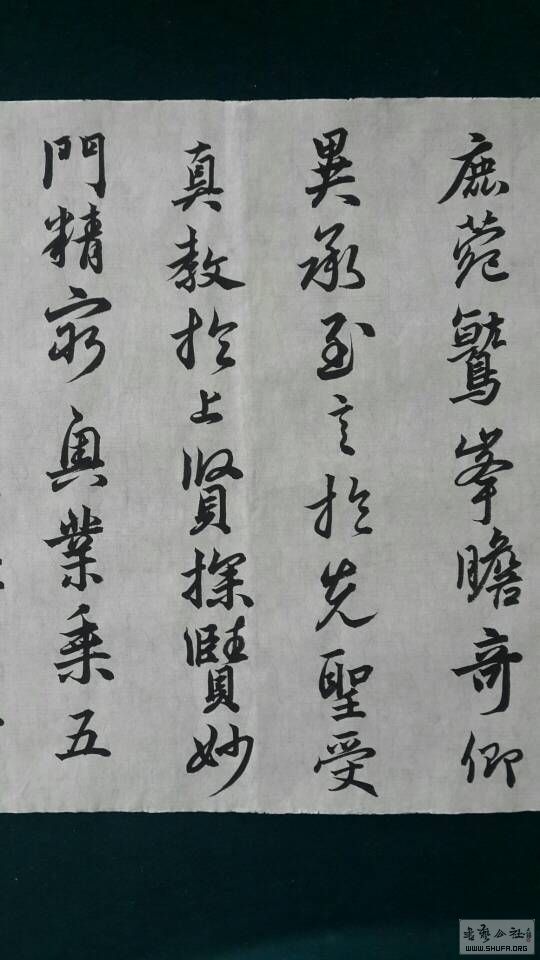 鹿菀鷲峯瞻奇仰
異承至言扵先聖受
真教扵上賢探賾妙
門精窮奥業乗五
书艺公社
WWW.SHUFA.ORG